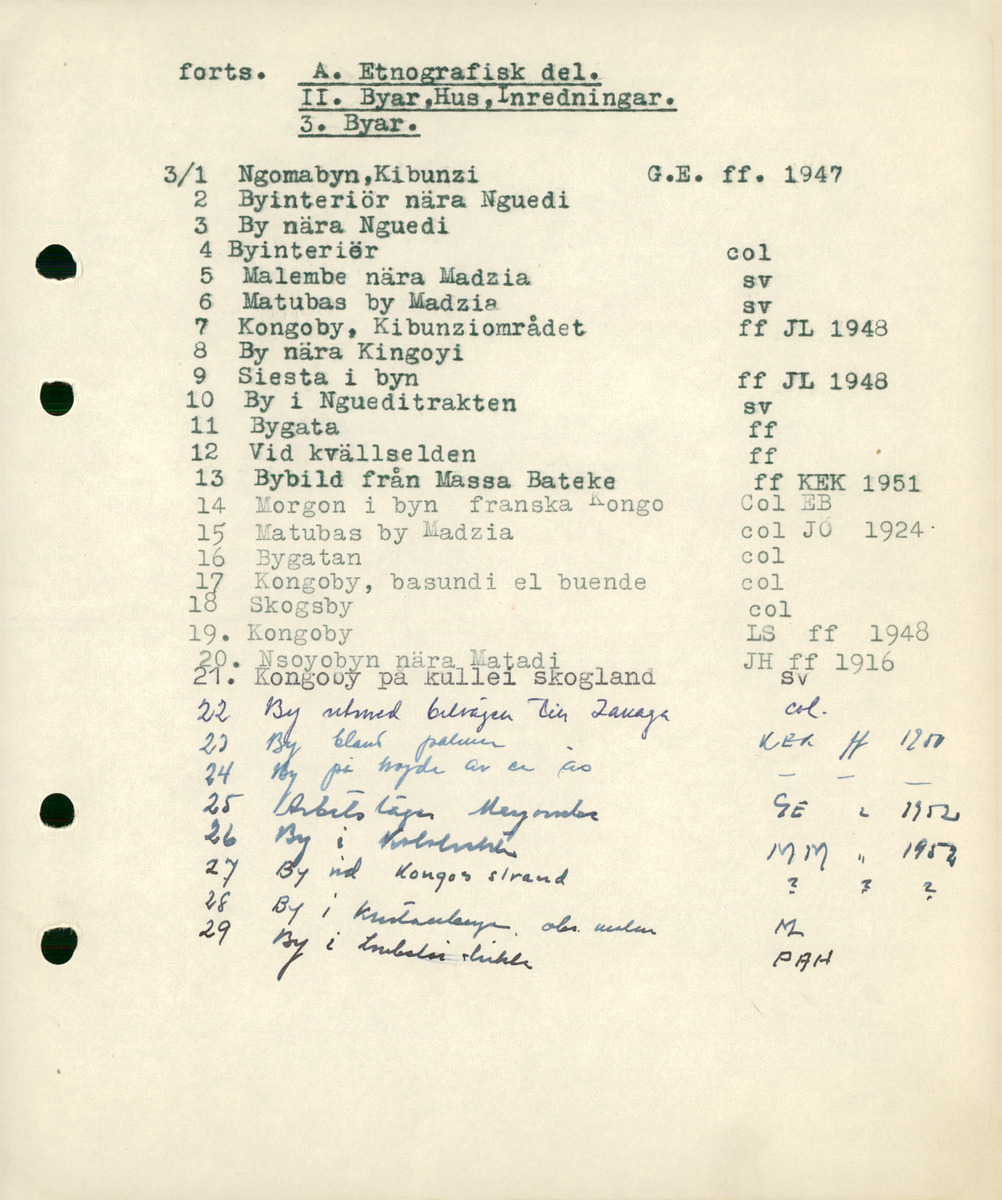 forts. A. Etnografisk del.
II. Byar,Hus,Inredningar.
3. Byar.
3/1 Ngomabyn,Kibunzi G.E. ff. 1947
2 Byinteriör nära Nguedi
3 By nära Nguedi
4 Byinteriör col
5 Malembe nära Madzia sv
6 Matubas by Madzia sv
7 Kongoby, Kibunziområdet ff JL 1948
8 By nära Kingoyi
9 Siesta i byn ff JL 1948
10 By i Ngueditrakten sv
11 Bygata ff
12 Vid kvällselden ff
13 Bybild från Massa Bateke ff KEK 1951
14 Morgon i byn franska Kongo Col EB
15 Matubas by Madzia col JO 1924
16 Bygatan col
17 Kongoby, basundi el buende col
18 Skogsby col
19. Kongoby LS ff 1948
20. Nsoyobyn nära Matadi JH ff 1916
21. Kongoby på kullei skogland sv
22 By utmed bilvägen till Zanaga col.
23 By bland palmer KEK ff 1950
24 By på höjde av en ås — — —
25 Arbetsläger GE " 1952
26 By i MM " 1952
27 By vid Kongos strand ? ? ?
28 By i obs. M
29 By i PAH